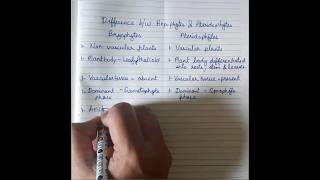 Difference b/w Bryophytes & Pteridophytes
Bryophytes
Pteridophytes
1. Non vascular plants
1. Vascular plants
2. Plant body - leafy/thalloid
2. Plant body differentiated into roots, stem & leaves
3. Vascular tissue - absent
3. Vascular tissue - present
4. Dominant - Gametophyte phase
4. Dominant - Sporophyte phase